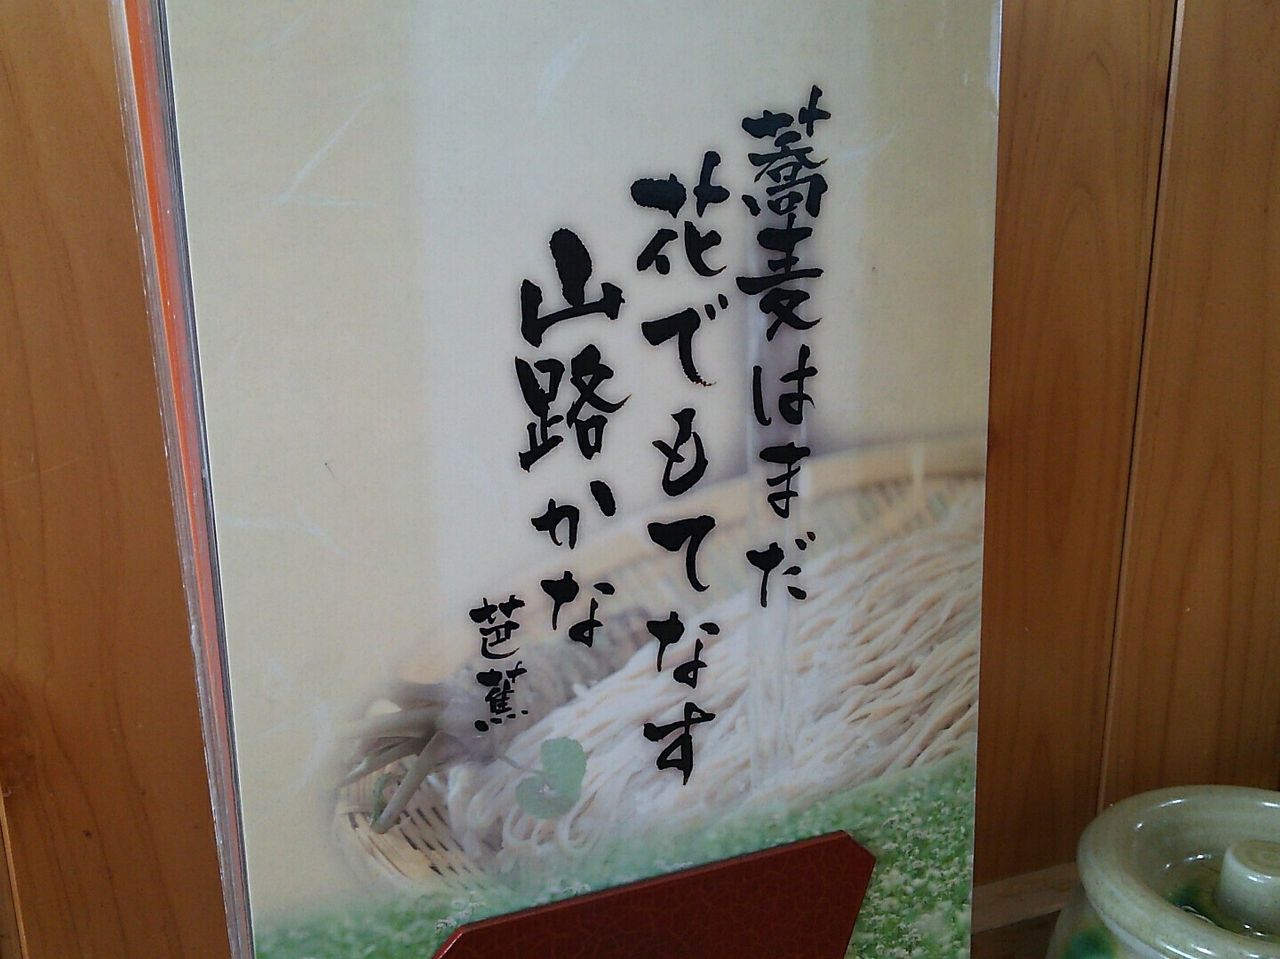 蕎麦はまだ
花でもてなす
山路かな
芭蕉